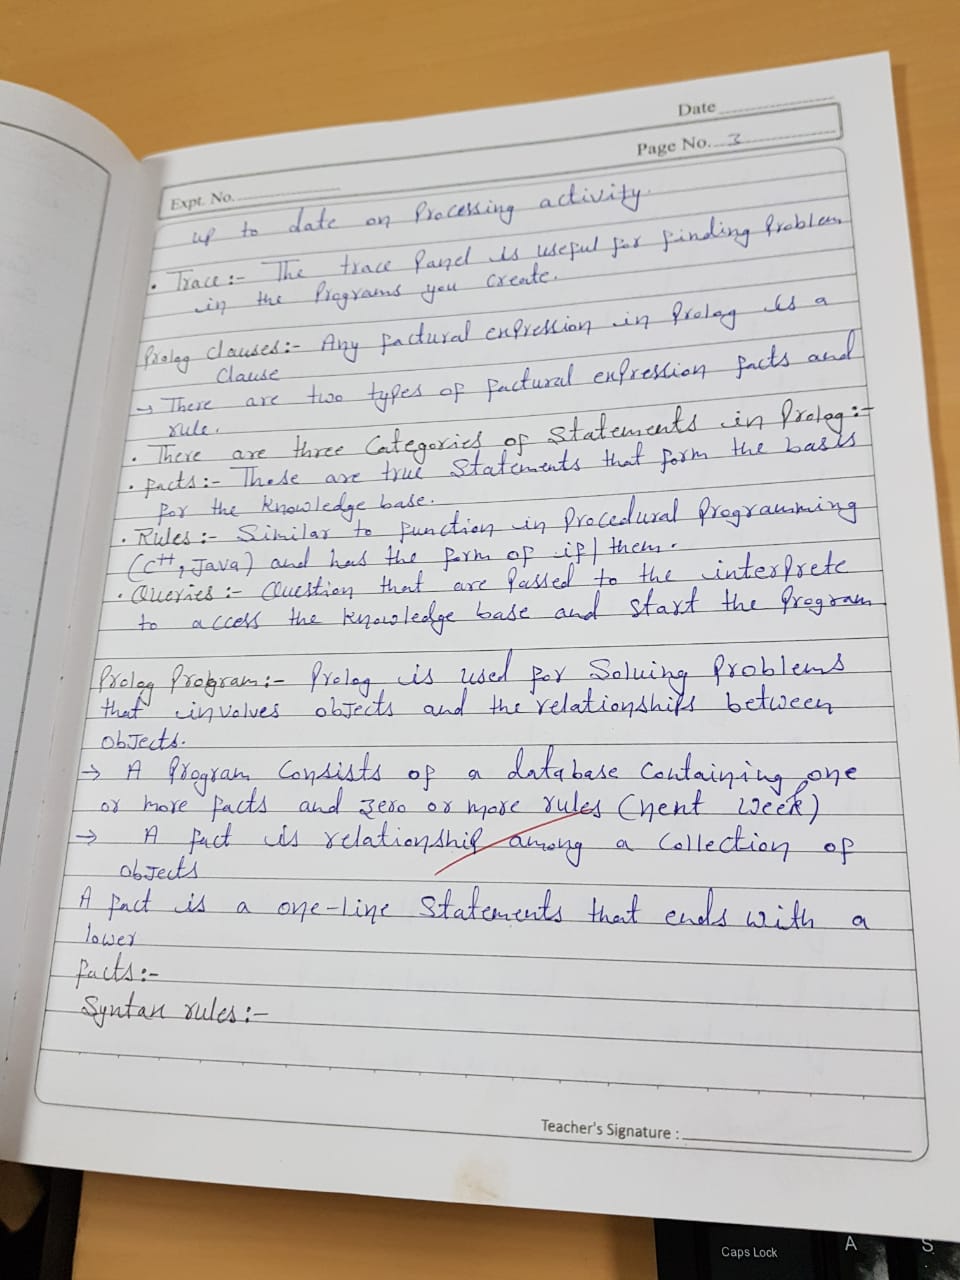 Date
Page No. 3
Expt. No.
up to date on Processing activity.
• Trace:- The trace Panel is useful for finding Problem
in the Programs you create.
Prolog clauses:- Any factural expression in Prolog is a
clause
→ There are two types of factural expression facts and
rule.
• There are three Categories of Statements in Prolog:-
• facts:- Those are true Statements that form the basis
for the knowledge base.
• Rules:- Similar to function in Procedural Programming
(C++, Java) and has the form of if/them.
• Queries:- Question that are Passed to the interprete
to access the knowledge base and start the Program
Prolog Program:- Prolog is used for Soluing Problems
that involves objects and the relationships between
objects.
→ A Program Consists of a database Containing one
or more facts and zero or more rules (next week)
→ A fact is relationship among a Collection of
objects
A fact is a one-line Statements that ends with a
lower
facts:-
Syntax rules:-
Teacher's Signature :
Caps Lock
A
S